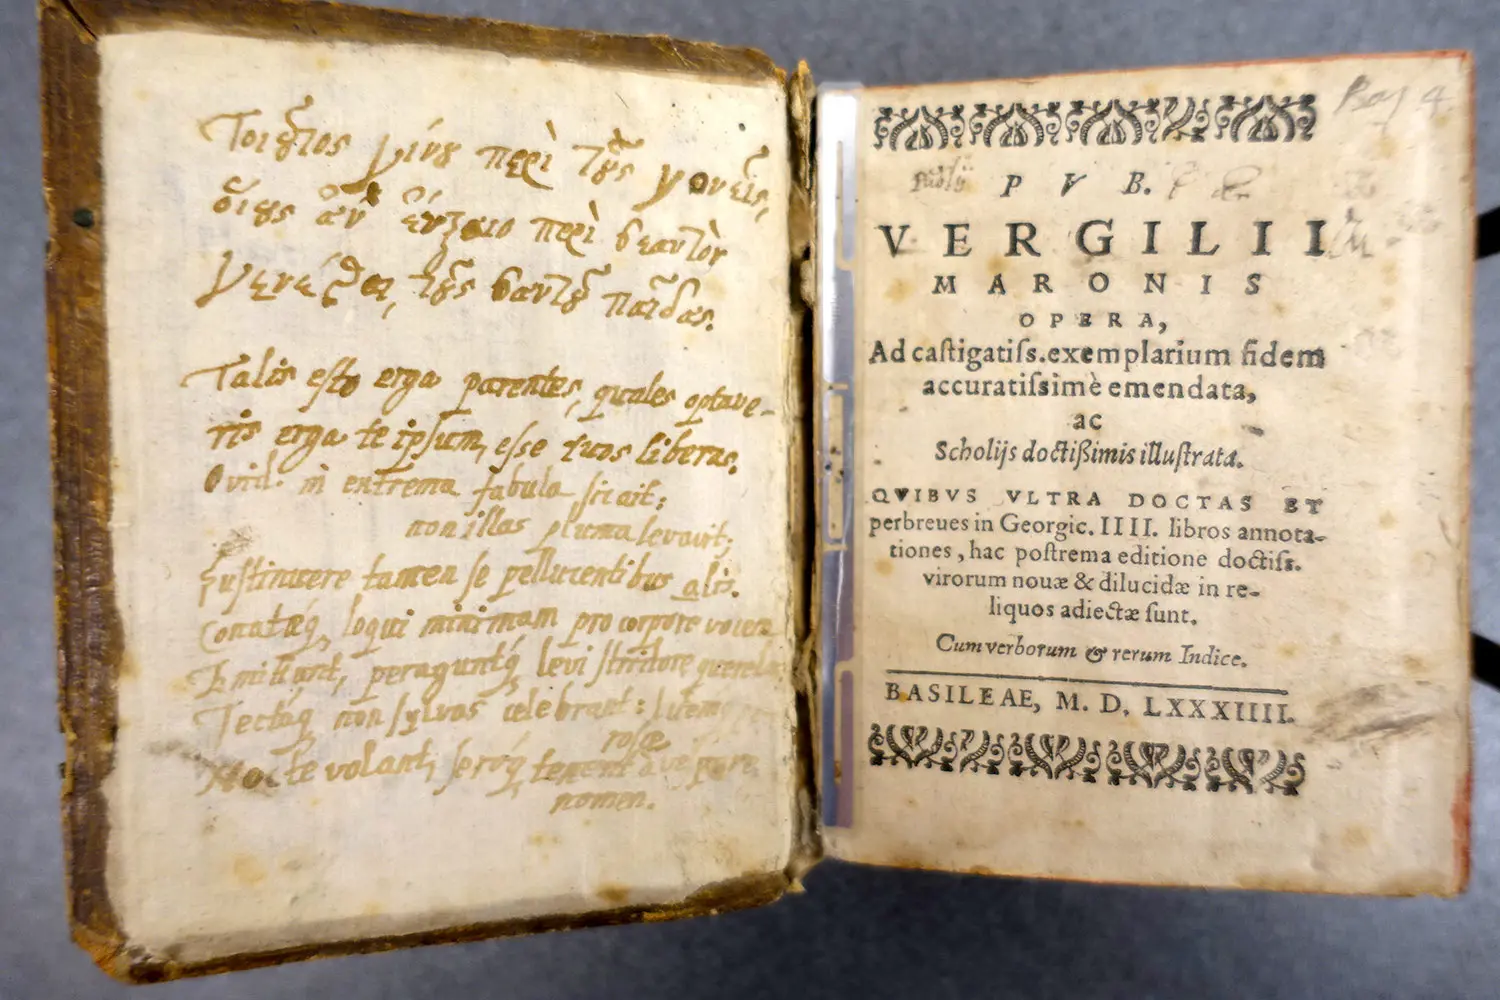 Τοιοῦτος γίνου περὶ τοὺς γονεῖς,
οἵους ἂν εὔξαιο περὶ σεαυτὸν
γενέσθαι τοὺς σαυτοῦ παῖδας.
Talis esto erga parentes, quales optave-
ris erga te ipsum, esse tuos liberos.
Ovid. in extrema fabula sic ait:
non illas pluma levavit;
Sustinuere tamen se pellucentibus alis.
Conatæq, loqui minimam pro corpore vocem
Emittunt, peraguntq, levi stridore querelas
Tectaq, non sylvas celebrant: lucem
rosæ
Nocte volant, seroq, tenent a vespere
nomen.
Bay 4.
Publij
P V B.
VERGILII
MARONIS
OPERA,
Ad castigatiss. exemplarium fidem
accuratissimè emendata,
ac
Scholijs doctißimis illustrata.
QVIBVS VLTRA DOCTAS ET
perbreues in Georgic. IIII. libros annota-
tiones, hac postrema editione doctiss.
virorum nouæ & dilucidæ in re-
liquos adiectæ sunt.
Cum verborum & rerum Indice.
BASILEAE, M. D. LXXXIIII.